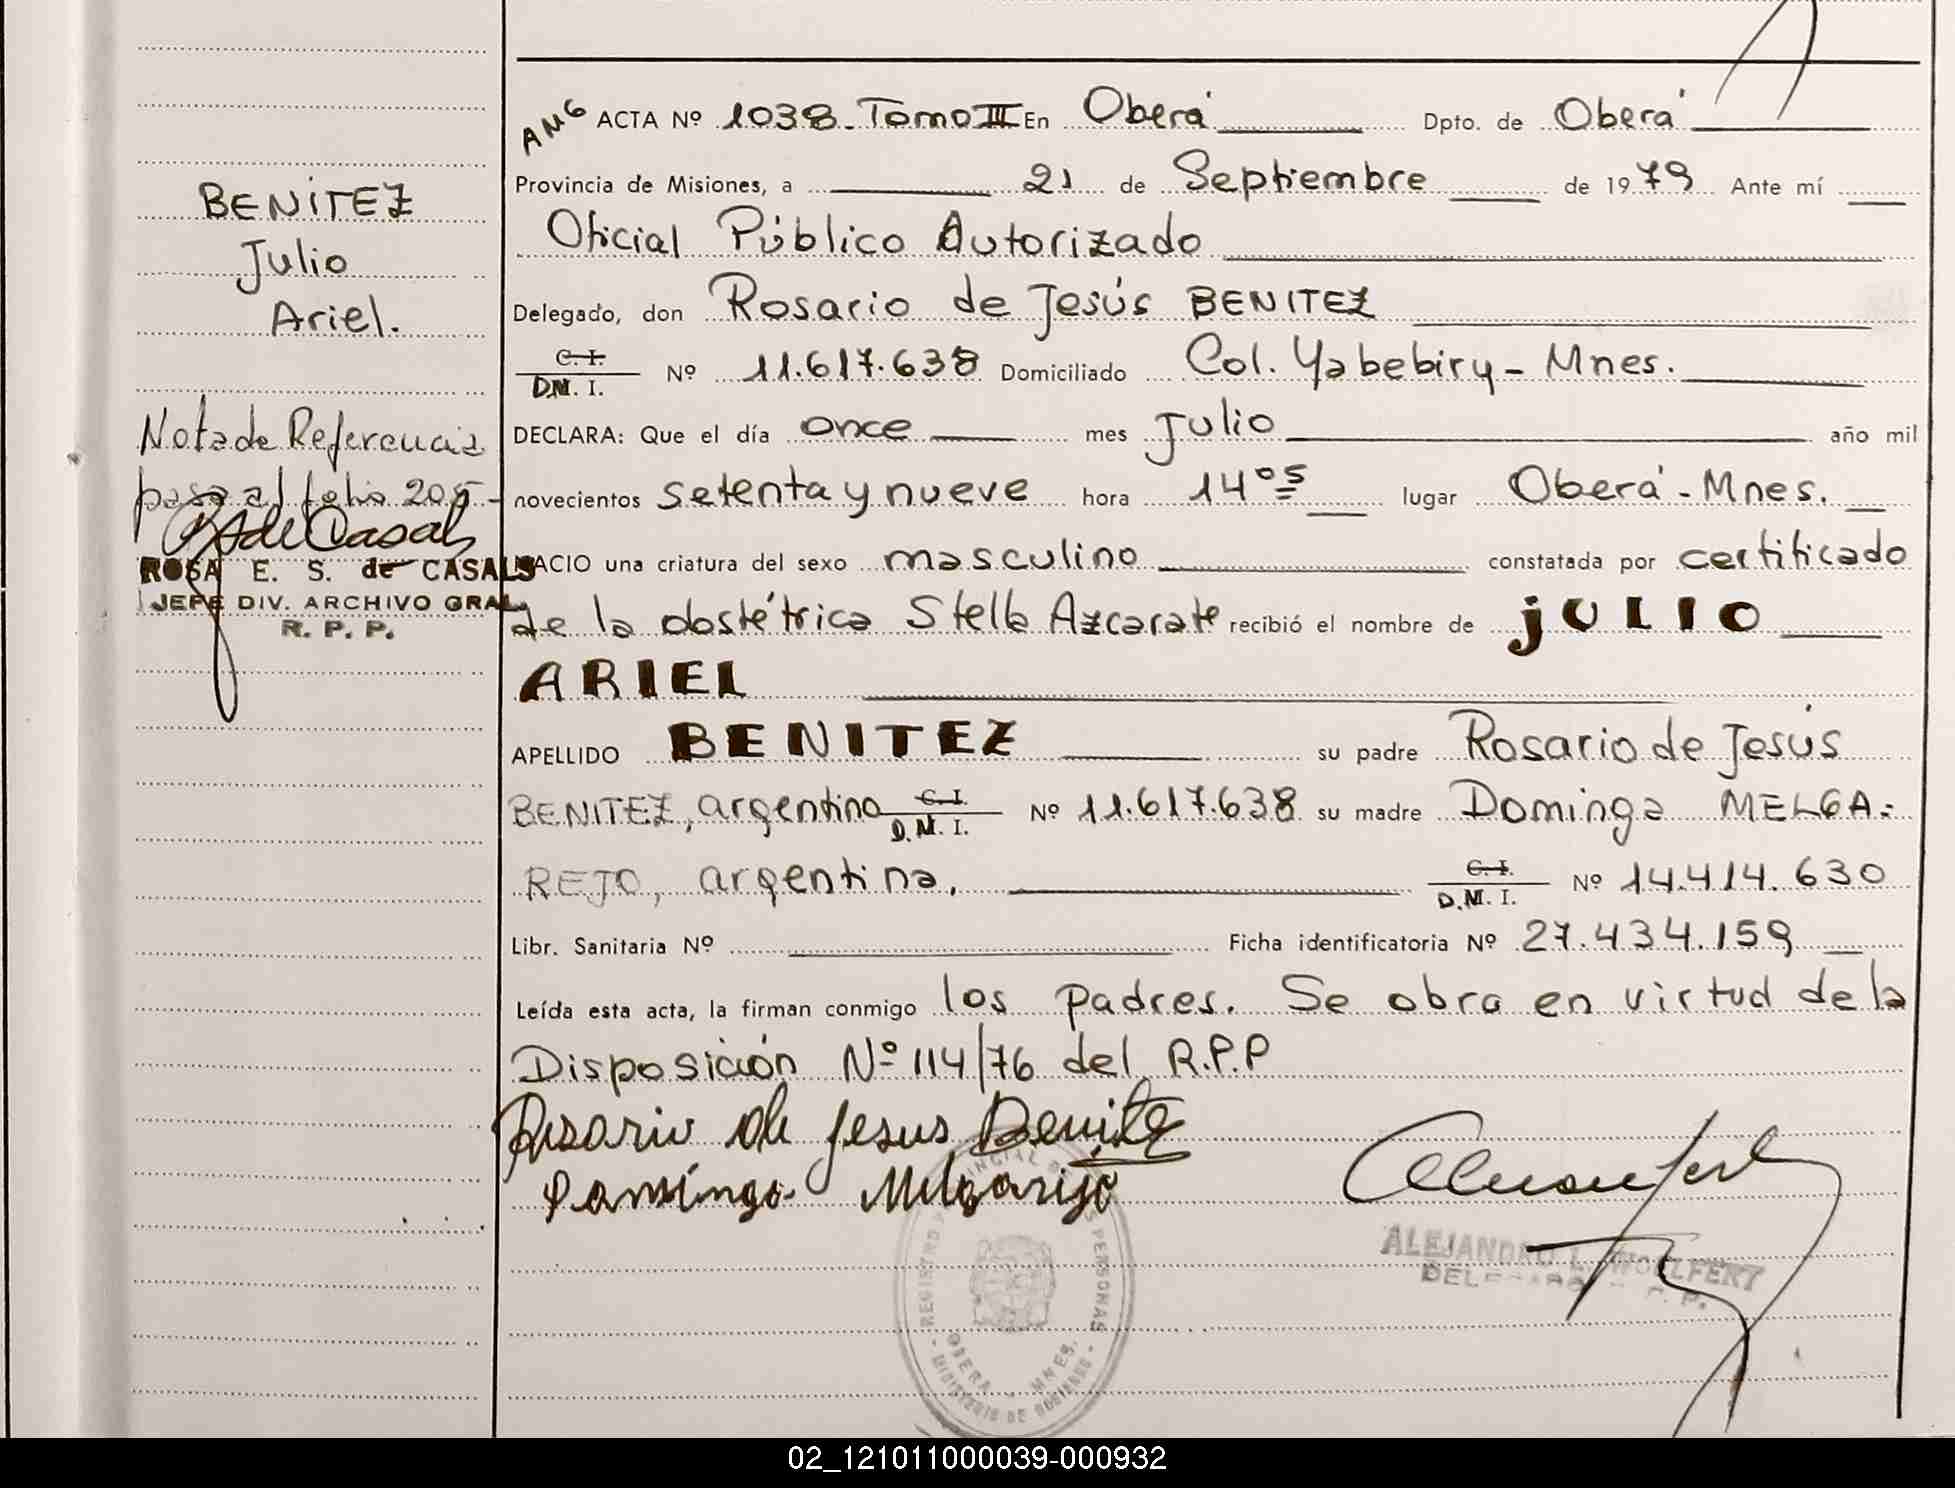 BENÍTEZ
Julio
Ariel.
Nota de Referencia
pasa al folio 205-
R S de Casals
ROSA E. S. de CASALS
JEFE DIV. ARCHIVO GRAL.
R. P. P.
AMG ACTA Nº 1038-Tomo III En Oberá Dpto. de Oberá
Provincia de Misiones, a 21 de Septiembre de 1979 Ante mí
Oficial Público Autorizado
Delegado, don Rosario de Jesús BENITEZ
C. I.
D.N. I. Nº 11.617.638 Domiciliado Col. Yabebiry - Mnes.
DECLARA: Que el día once mes Julio año mil
novecientos setenta y nueve hora 14º5 lugar Oberá - Mnes.
NACIO una criatura del sexo masculino constatada por certificado
de la obstétrica Stella Azcarate recibió el nombre de JULIO
ARIEL
APELLIDO BENITEZ su padre Rosario de Jesús
BENITEZ, argentino C. I. D.N. I. Nº 11.617.638 su madre Dominga MELGA-
REJO, argentina. C. I. D.N. I. Nº 14.414.630
Libr. Sanitaria Nº Ficha identificatoria Nº 27.434.159
Leída esta acta, la firman conmigo los padres. Se obra en virtud de la
Disposición Nº 114/76 del R.P.P
Rosario de Jesus Benitez
Dominga Melgarijo
ALEJANDRO L. WOELFERT
REGISTRO PROVINCIAL DE LAS PERSONAS
OBERA - MNES.
MINISTERIO DE GOBIERNO
02_121011000039-000932